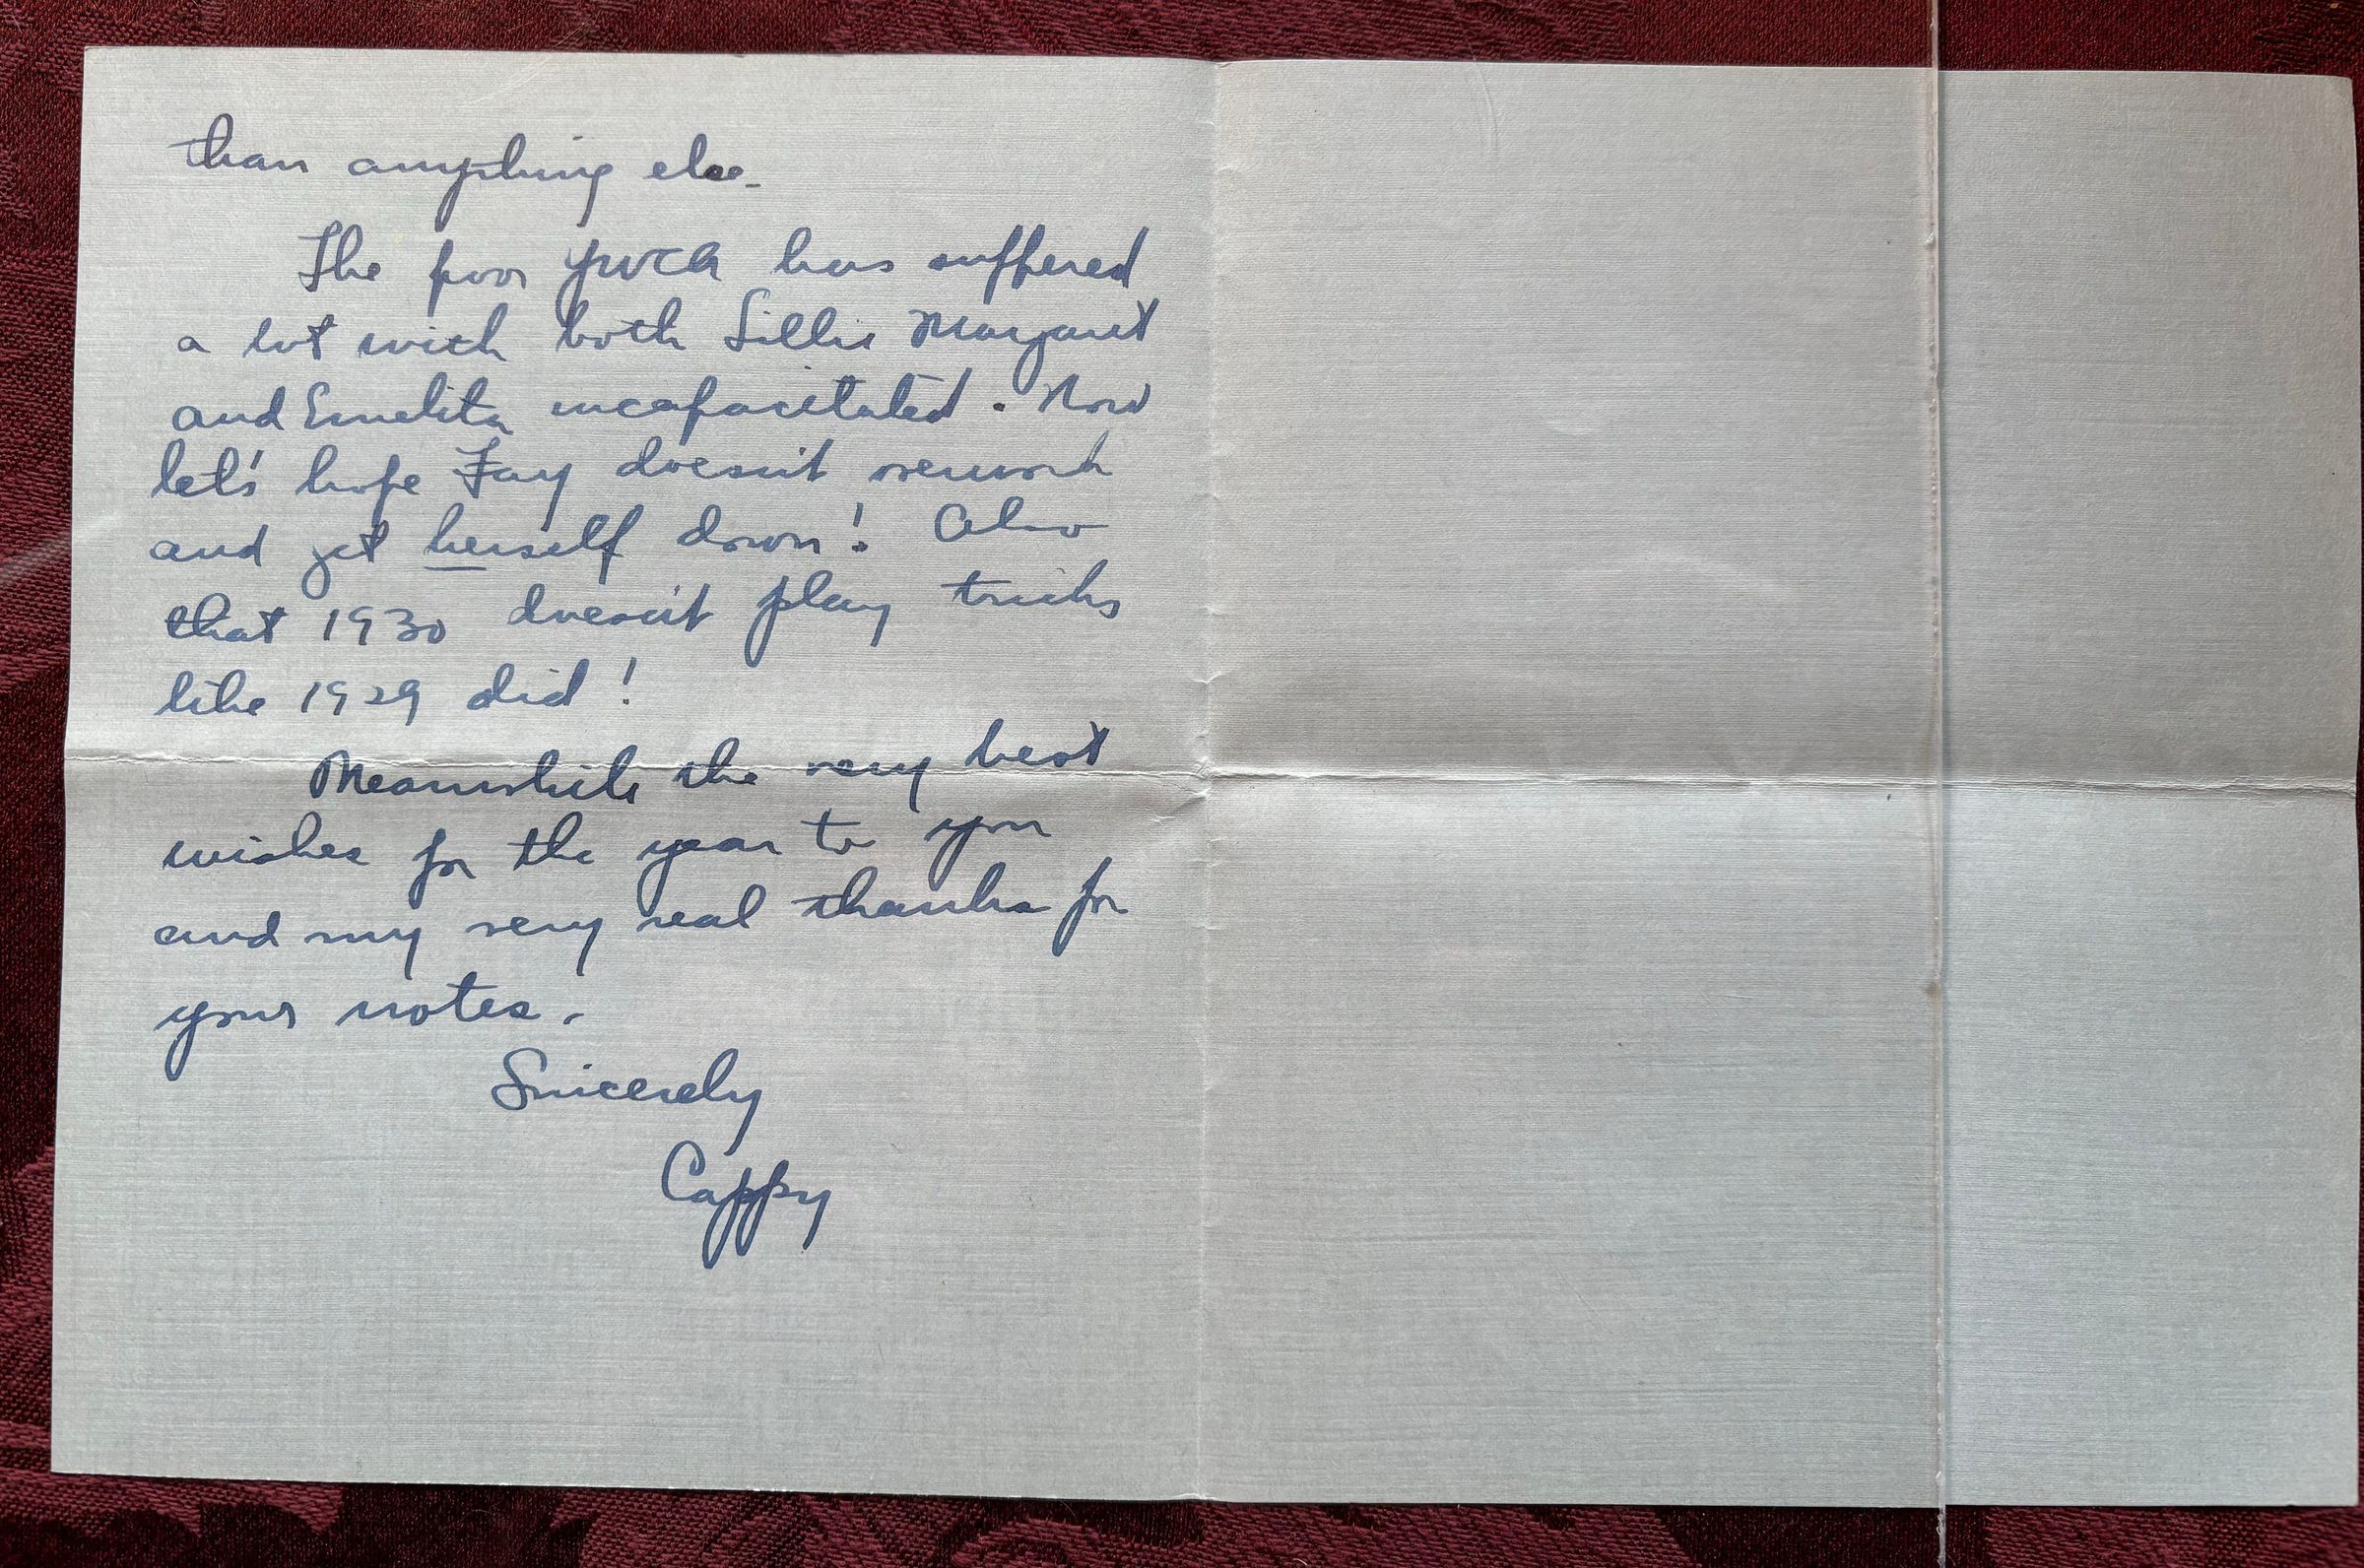 than anything else.
The poor YWCA has suffered
a lot with both Lillie Margaret
and Emelita incapacitated. Now
let's hope Fay doesn't overwork
and get herself down! Also
that 1930 doesn't play tricks
like 1929 did!
Meanwhile the very best
wishes for the year to you
and my very real thanks for
your notes.
Sincerely
Cappy